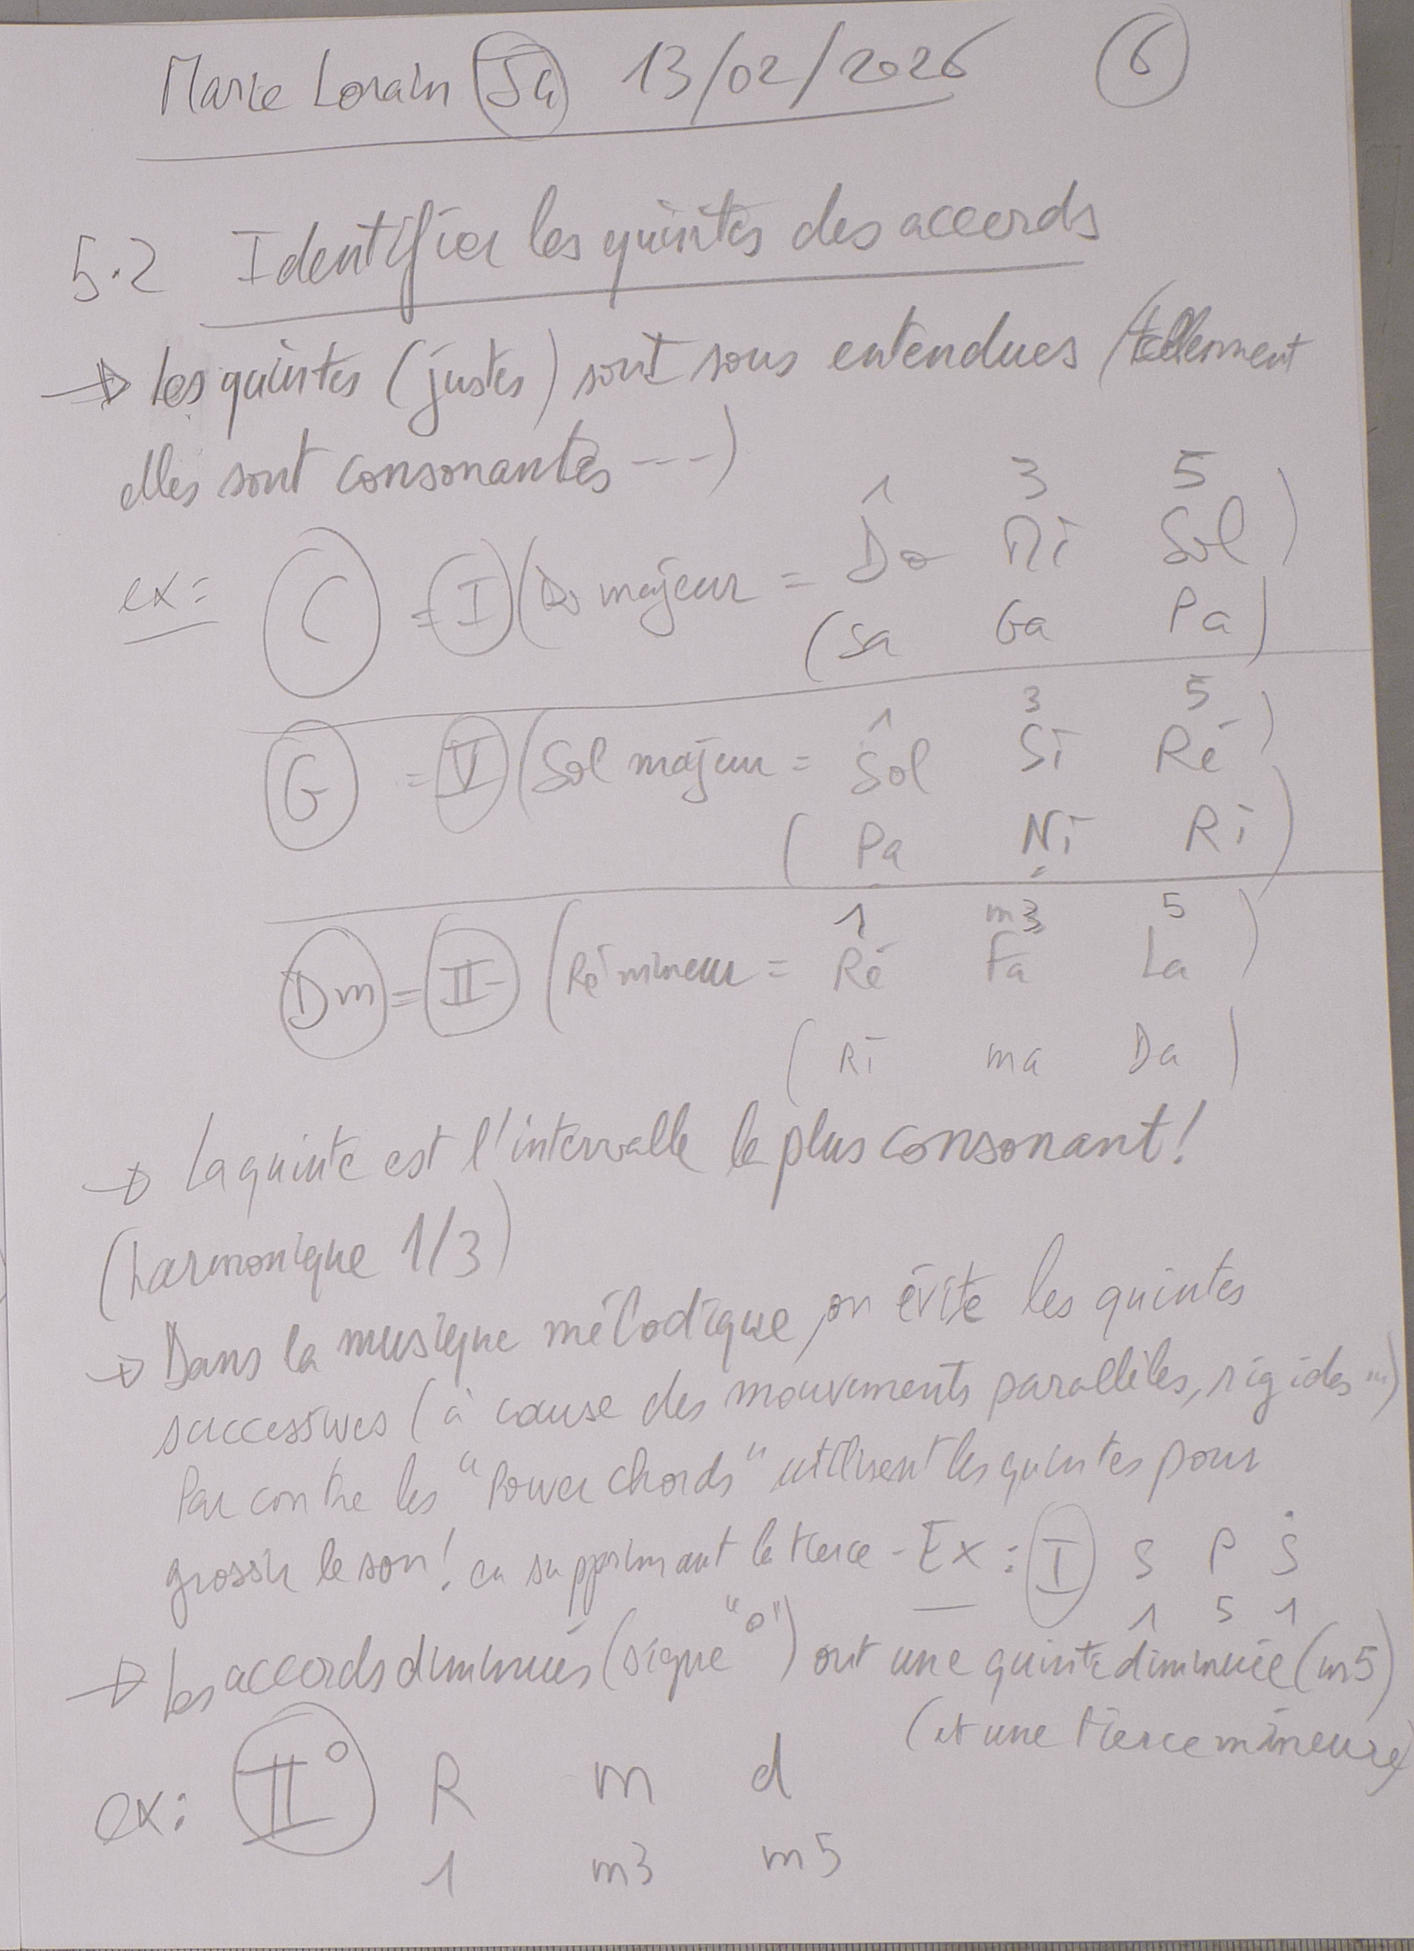 Marie Lorain Sa 13/02/2026 6
5.2 Identifier les quintes des accords
→ les quintes (justes) sont sous entendues (tellement
elles sont consonantes ---)
1 3 5
ex: C = I (Do majeur = Do Mi Sol)
(Sa Ga Pa)
1 3 5
G = V (Sol majeur = Sol Si Ré)
(Pa Ni Ri)
1 m3 5
Dm = II- (Ré mineur = Ré Fa La)
(Ri ma Da)
→ La quinte est l'intervalle le plus consonant!
(harmonique 1/3)
→ Dans la musique mélodique, on évite les quintes
successives (à cause des mouvements parallèles, rigides ...)
Par contre les "Power chords" utilisent les quintes pour
grossir le son! en supprimant la tierce - Ex: I S P Ṡ
1 5 1
→ Les accords diminués (signe "o") ont une quinte diminuée (m5)
(et une tierce mineure)
ex: II° R m d
1 m3 m5